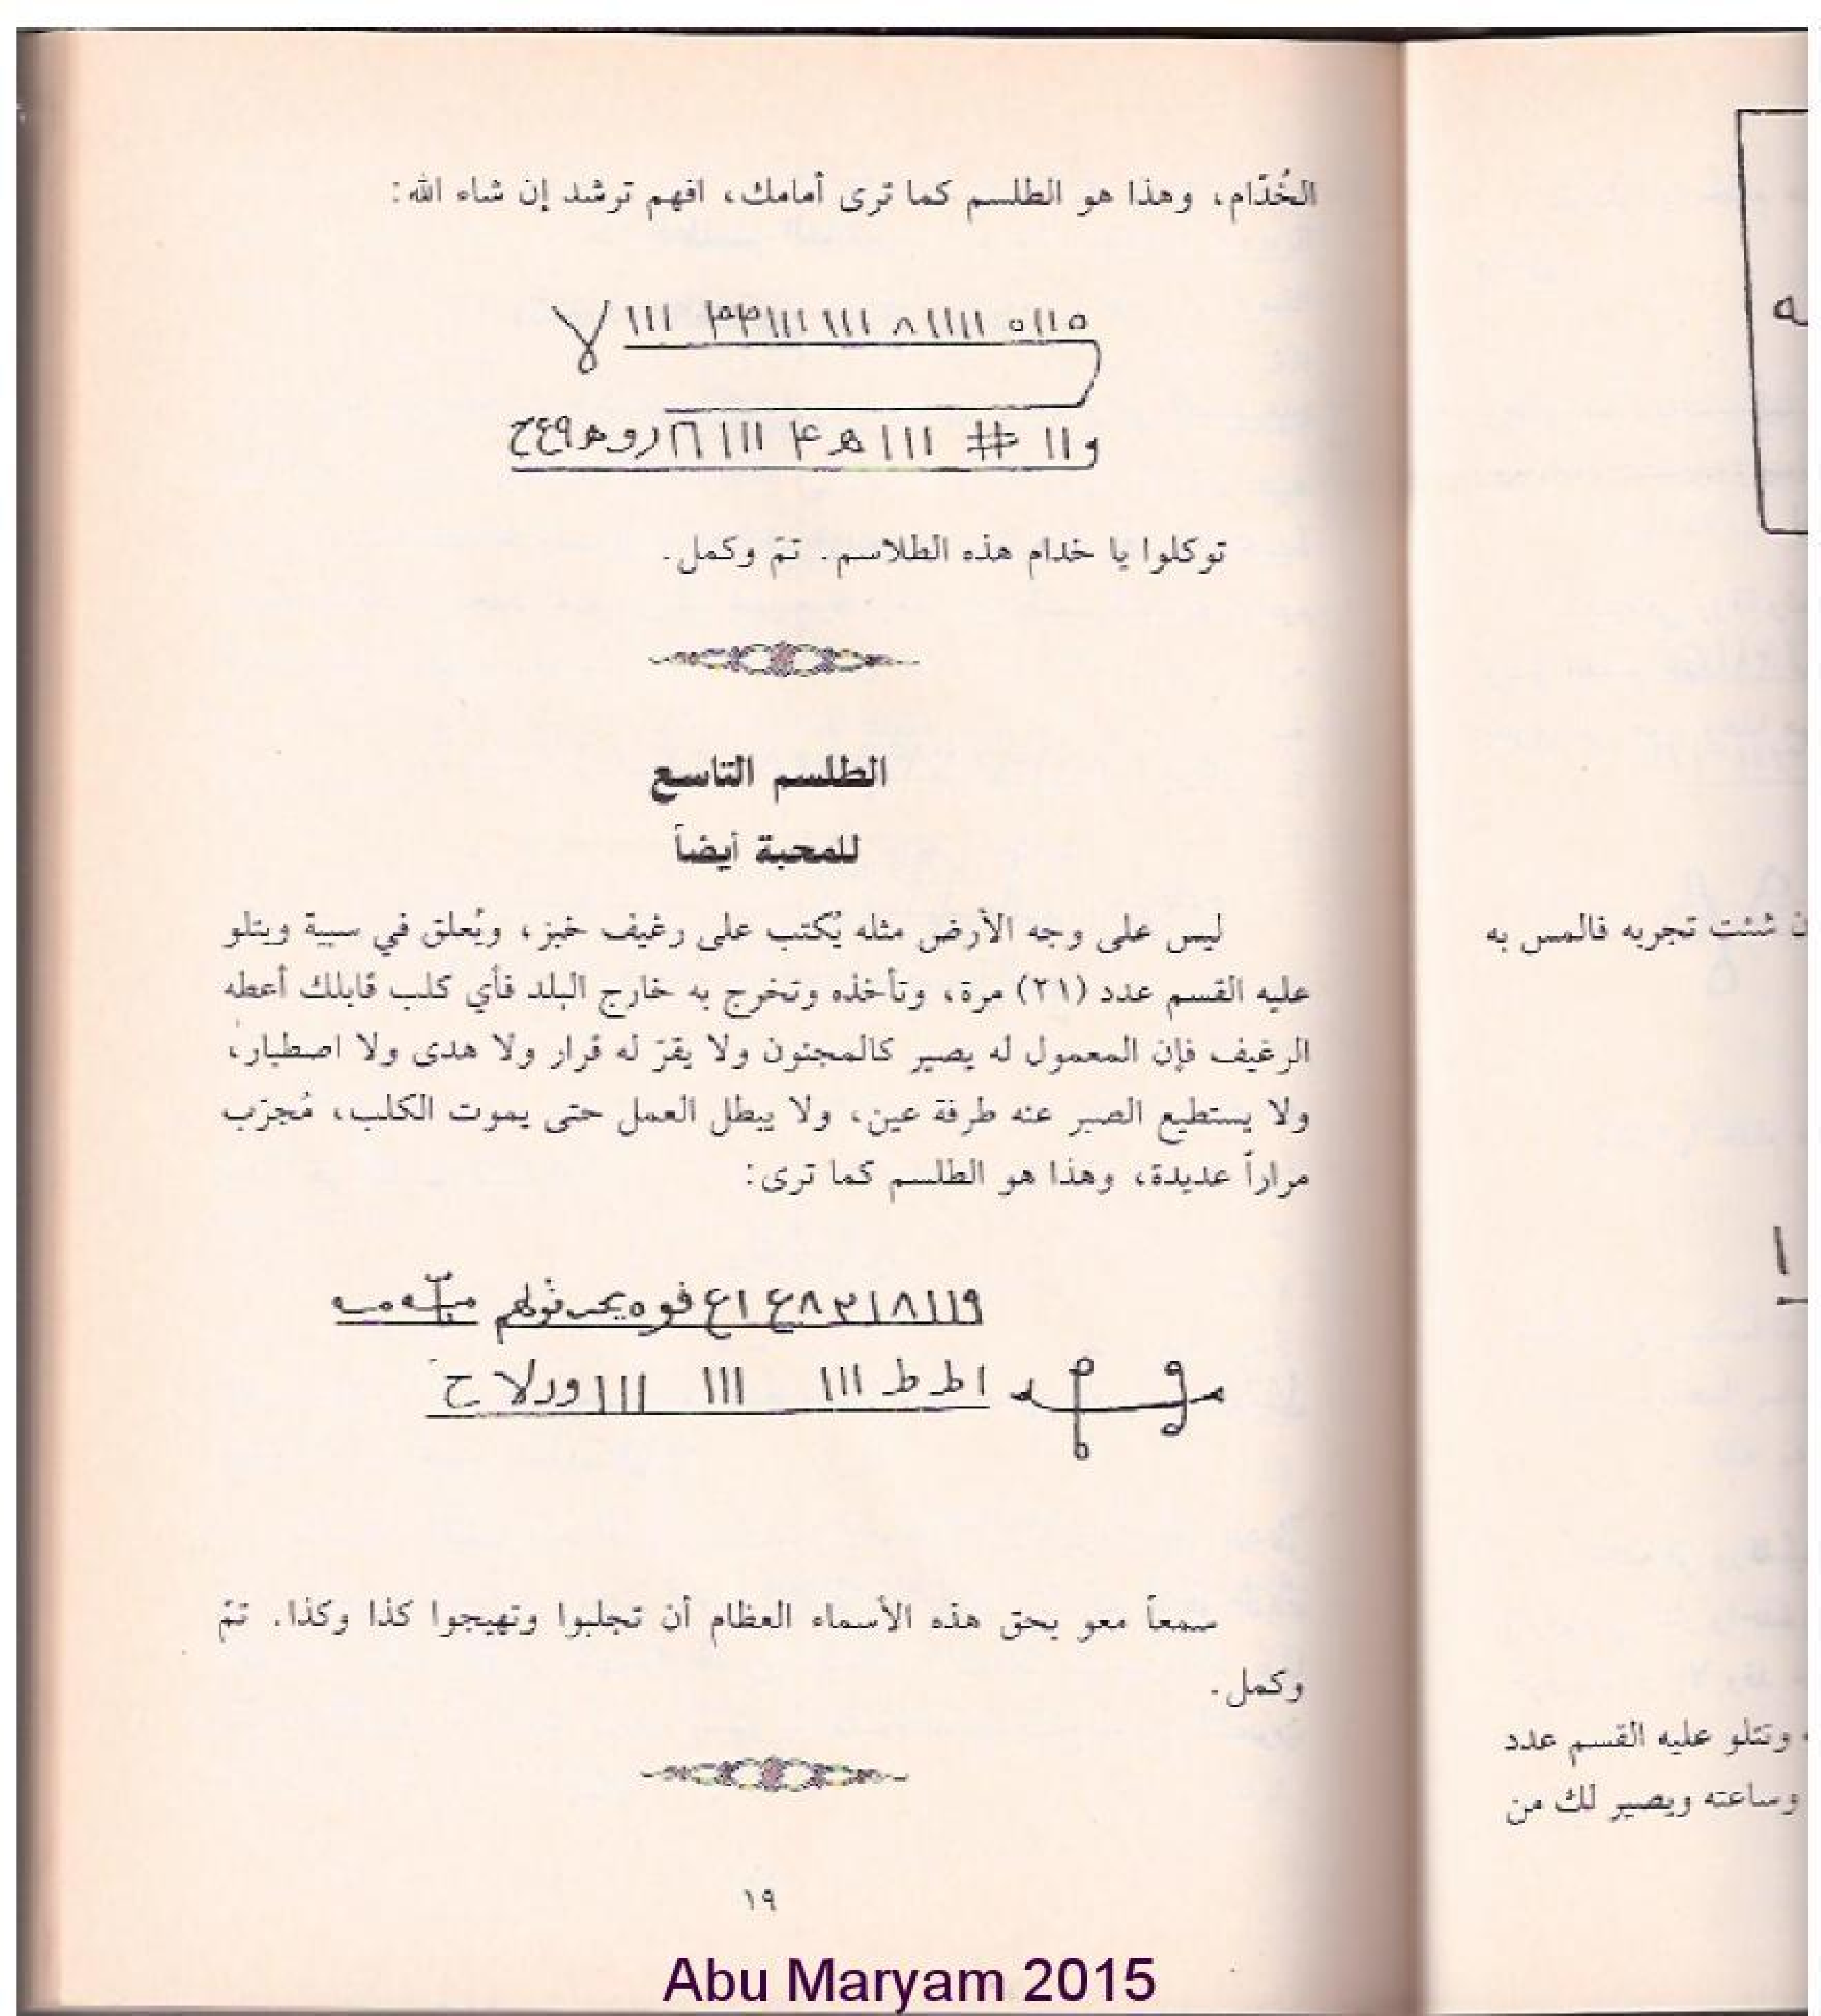 الخُدّام، وهذا هو الطلسم كما ترى أمامك، افهم ترشد إن شاء الله:
توكلوا يا خدام هذه الطلاسم. تمّ وكمل.
الطلسم التاسع
للمحبة أيضاً
ليس على وجه الأرض مثله يُكتب على رغيف خبز، ويُعلق في سبية ويتلو
عليه القسم عدد (٢١) مرة، وتأخذه وتخرج به خارج البلد فأي كلب قابلك أعطه
الرغيف فإن المعمول له يصير كالمجنون ولا يقرّ له قرار ولا هدى ولا اصطبار،
ولا يستطيع الصبر عنه طرفة عين، ولا يبطل العمل حتى يموت الكلب، مُجرّب
مراراً عديدة، وهذا هو الطلسم كما ترى:
سمعاً معو بحق هذه الأسماء العظام أن تجلبوا وتهيجوا كذا وكذا. تمّ
وكمل.
١٩
ن شئت تجربه فالمس به
وتتلو عليه القسم عدد
وساعته ويصير لك من
Abu Maryam 2015